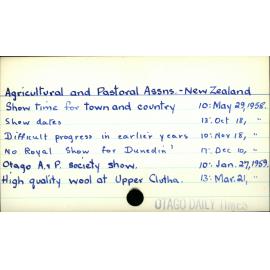 Agricultural and Pastoral Assns. - New Zealand
Show time for town and country 10: May 29, 1958.
Show dates 13: Oct 18, "
Difficult progress in earlier years 10: Nov 18, "
No Royal Show for Dunedin' 17: Dec 10, "
Otago A. & P. society show. 10: Jan. 27, 1959.
High quality wool at Upper Clutha. 13: Mar. 21, "
OTAGO DAILY TIMES